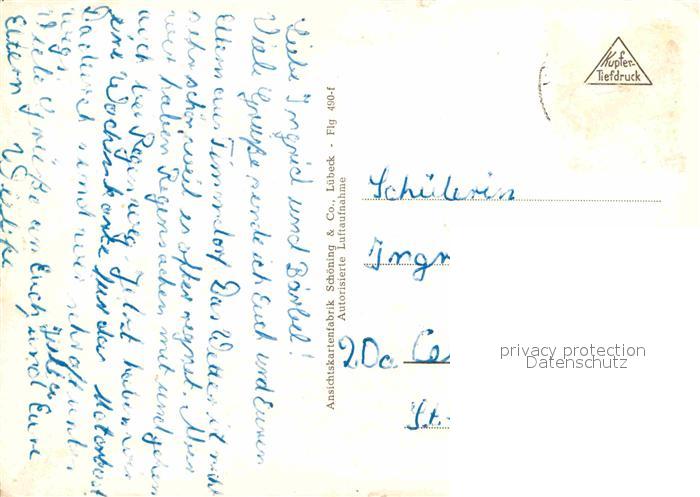 Liebe Ingrid und Bärbel!
Viele Grüße sende ich Euch und Euren
Eltern aus Timmendorf. Das Wetter ist nicht
sehr schön, weil es öfter regnet. Aber
wir haben Regensachen mit und gehen
auch bei Regen weg. Jetzt haben wir
eine Wochenkarte für das Motorboot
Dadurch sind wir oft unter
wegs.
Viele Grüße an Euch und Eure
Eltern Wiebke
Ansichtskartenfabrik Schöning & Co., Lübeck - Flg 490-f
Autorisierte Luftaufnahme
Kupfer-
Tiefdruck
Schülerin
Ingr
privacy protection
Datenschutz
St.